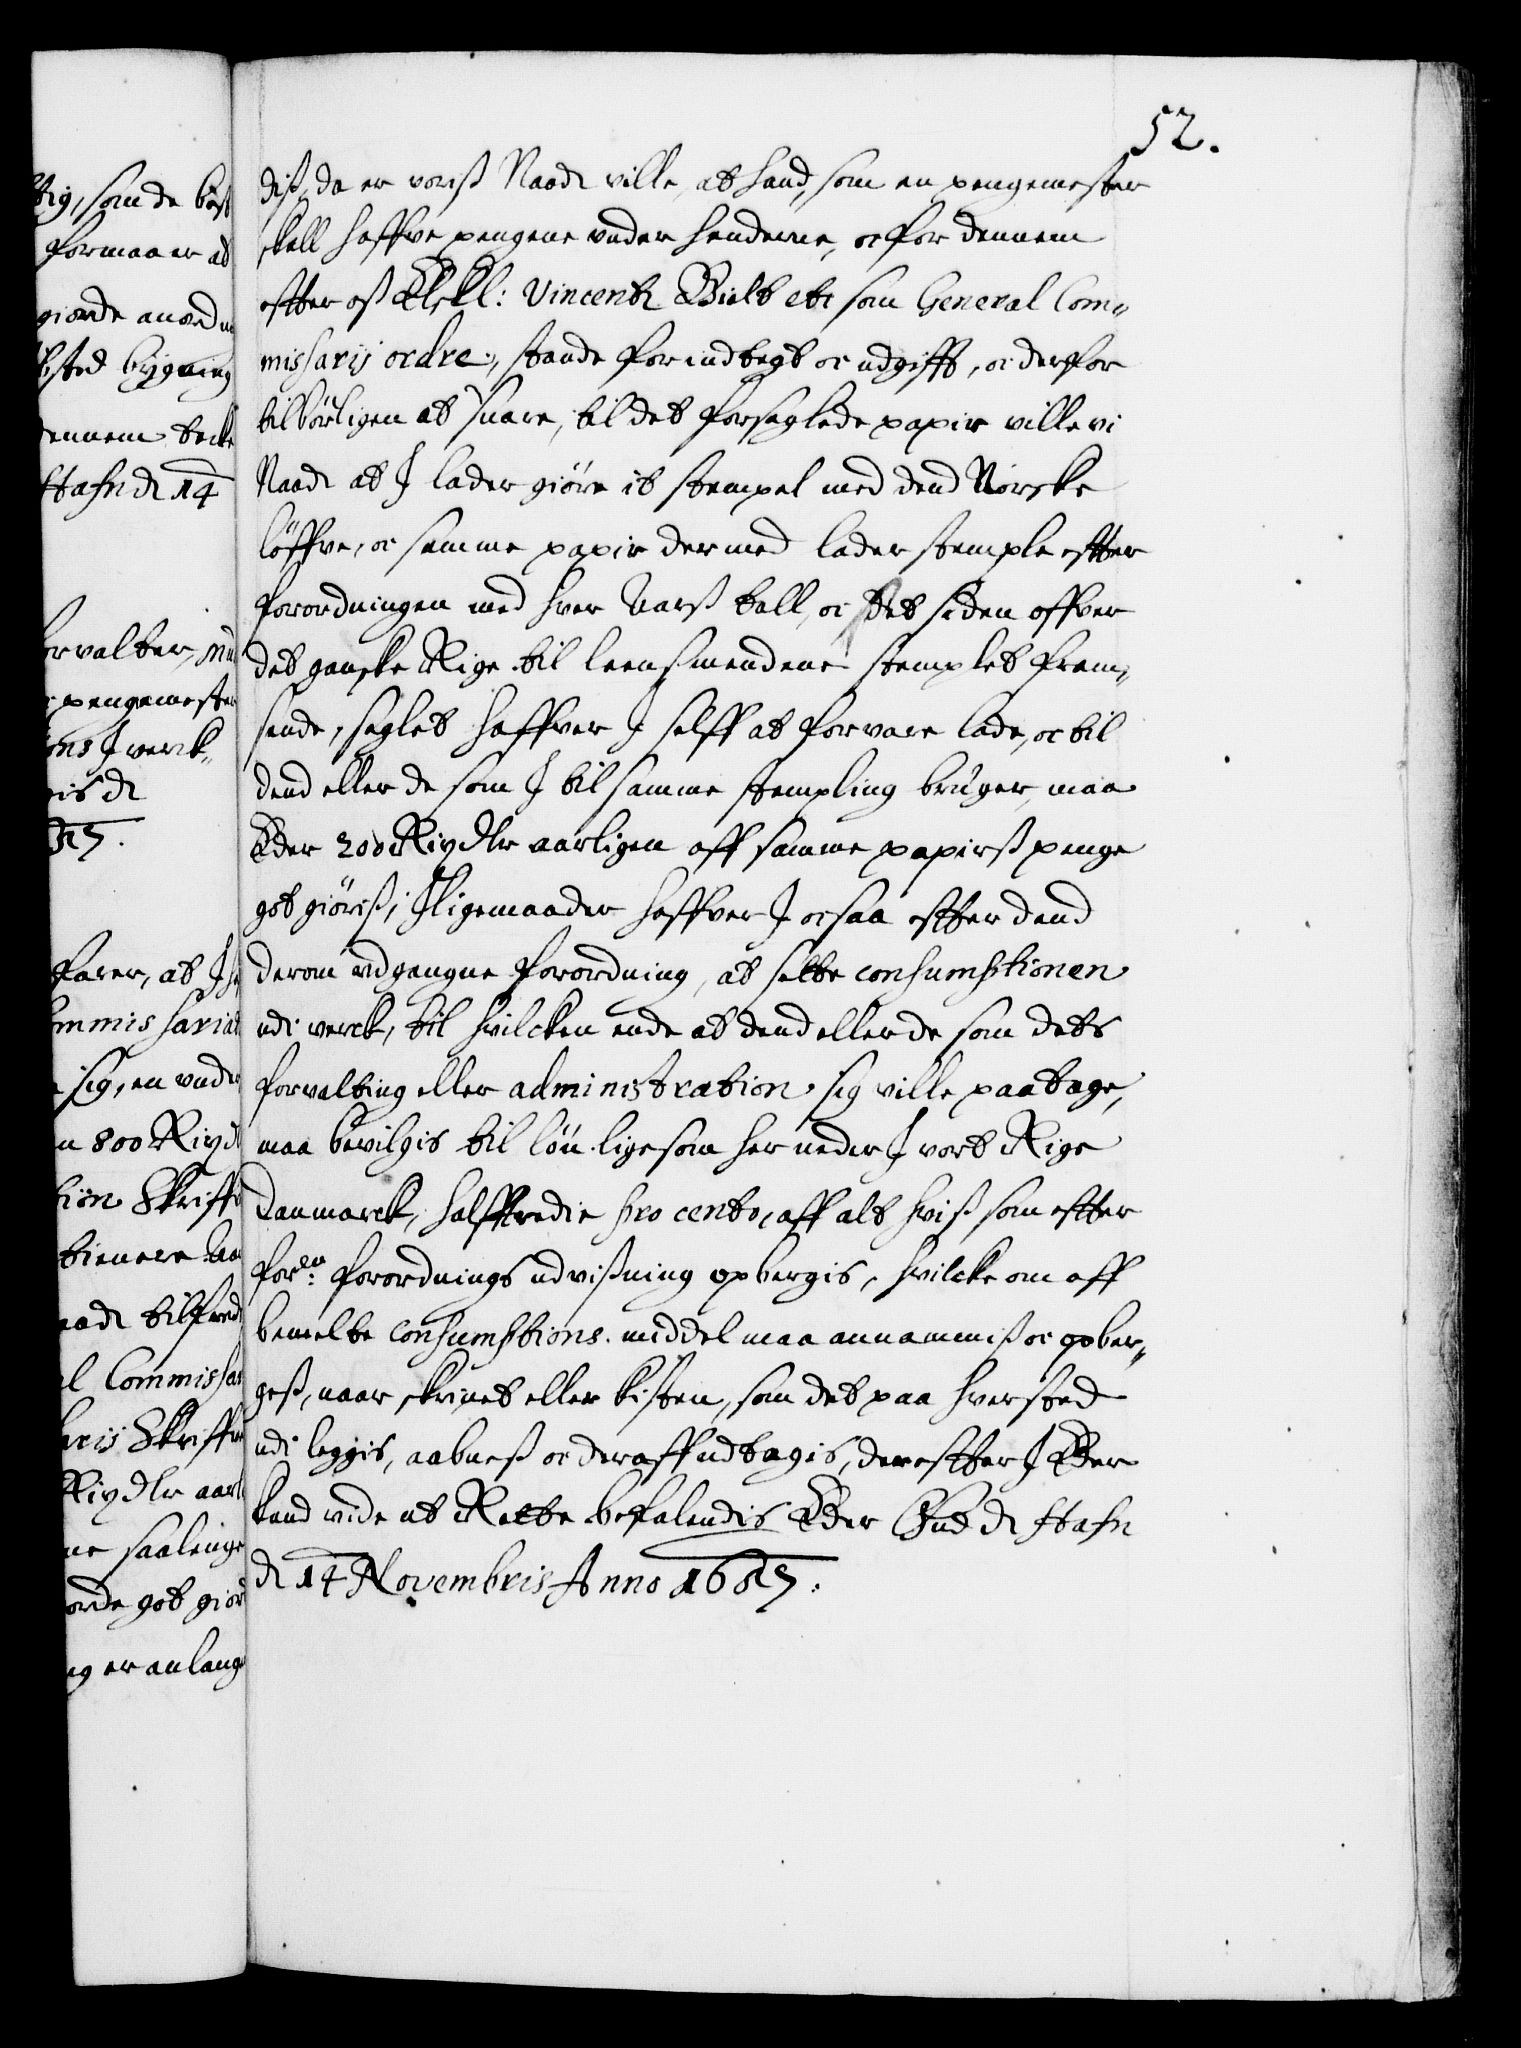 52.
diß, da er vorß Naade ville, at hand, som en pengemester
skall haffve pengene under henderne, oc for dennem
effter oß Elskl: Vincentz Bielt etc som General Com„
missarij ordre, stande for indtegt oc udgifft, oc derfor
tilbörligen at suare, til det forseglede papir ville vi
Naade at J lader giöre it stempel med dend Norske
löffve, oc samme papir dermed lader stemple effter
forordningen med hver Aarß tall, oc det siden offver
det ganske Rige til leenßmendene stemplet frem„
sende, seglet haffver J selff at forvare lade, oc til
dend eller de som J til samme stempling bruger, maa
Eder 200 Rix Dlr aarligen aff samme papirß penge
got giöriß; J ligemaader haffver J ocsaa effter dend
derom udgangne forordning, at sette consumptionen
udi verck, til hvilcken ende at dend eller de som dets
forvalting eller administration sig ville paatage,
maa bevilgis til lön ligesom her neder J vort Rige
Danmarck, halfftredie pro cento, aff alt hviß som effter
forne: forordnings udvißning opbergis, hvilcke om aff
bemelte consumptions middel maa annammiß oc opber„
geß, naar skrinet eller kisten, som det paa hver sted
udi leggis, aabneß oc deraff udtagis, dereffter J Eder
kand vide at Rette befalendis Eder Gud de Hafn
d 14 Novembris Anno 1657.
tig, som de best
formaaer at
giorde anordn
sted bygning
dennem tecke
Hafn d 14
orvalter,
pengemester
ons J verck„
is d
57.
farer, at J
ommissariat
sig, en unde
n 800 Rix d
tion Skriff
tienere
aade tilfred
l Commissa
aris Skriff
Rix Dlr aarl
ne saalenge
orde got giör
ng er anlang